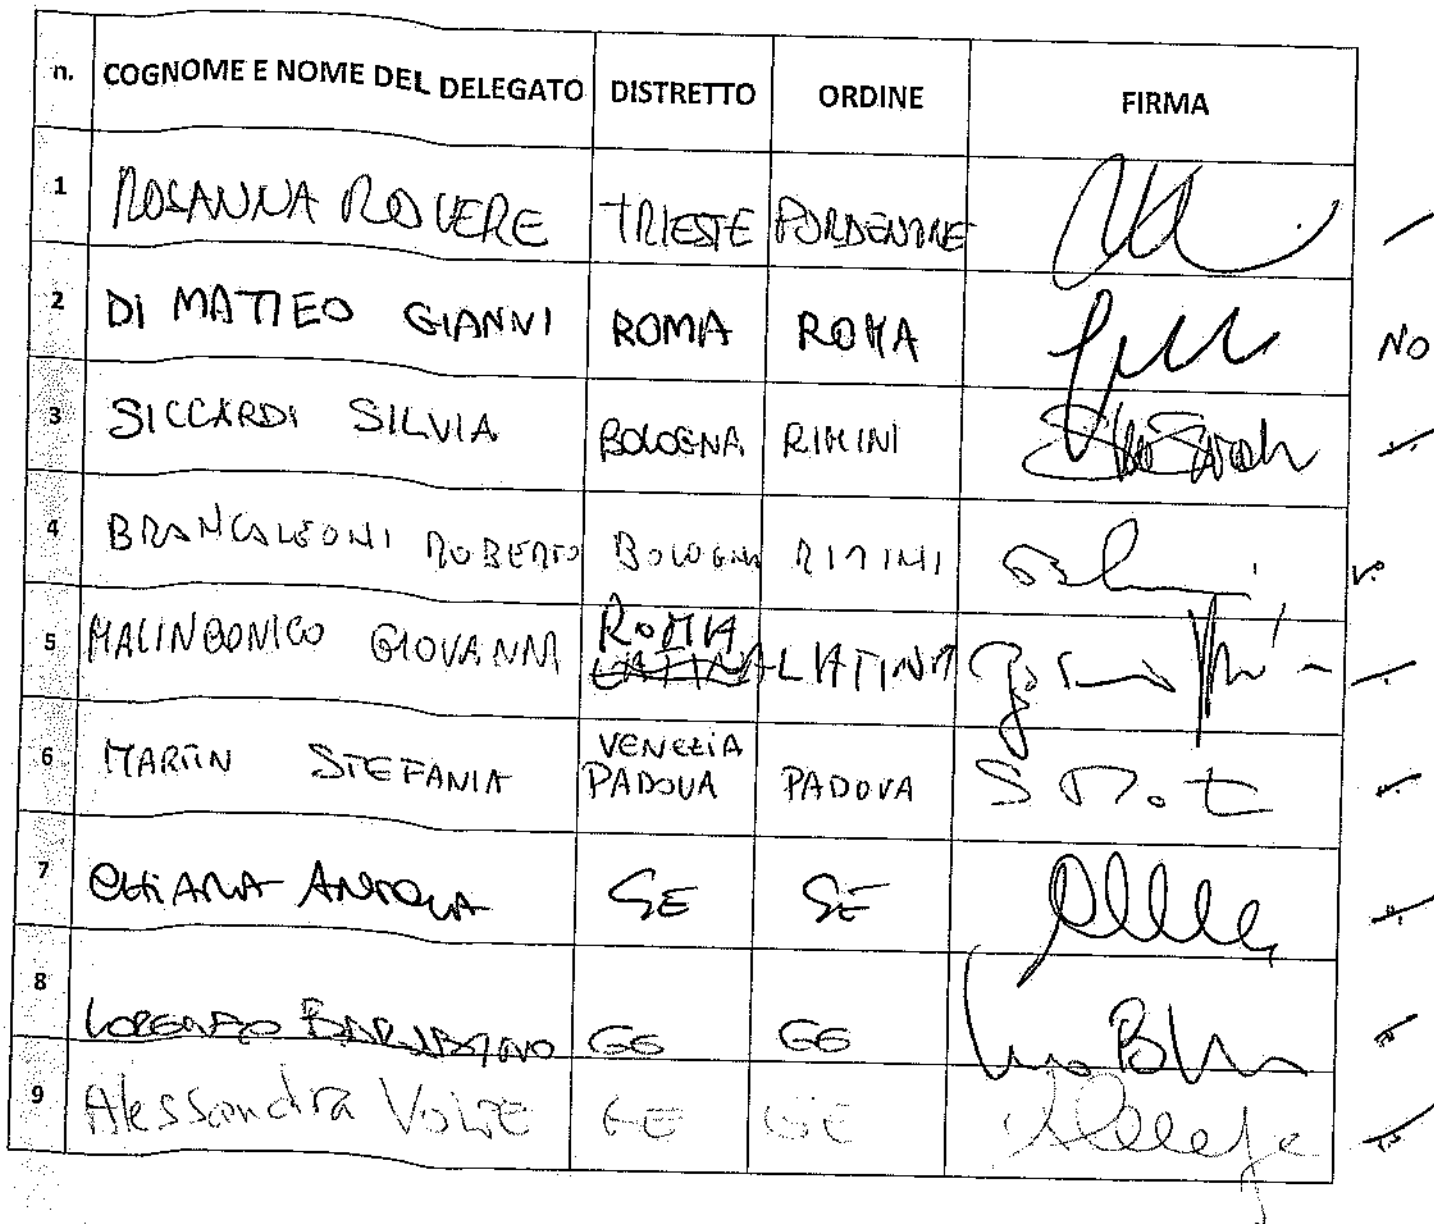 n. COGNOME E NOME DEL DELEGATO DISTRETTO ORDINE FIRMA
1 ROSANNA ROVERE TRIESTE PORDENONE
2 DI MATTEO GIANNI ROMA ROMA NO
3 SICCARDI SILVIA BOLOGNA RIMINI
4 BRANCALEONI ROBERTO BOLOGNA RIMINI
ROMA
5 MALINCONICO GIOVANNI LATINA LATINA
VENEZIA
6 MARTIN STEFANIA PADOVA PADOVA
7 CHIARA GE GE
8 LORENZO GE GE
9 Alessandra VOLPE GE GE